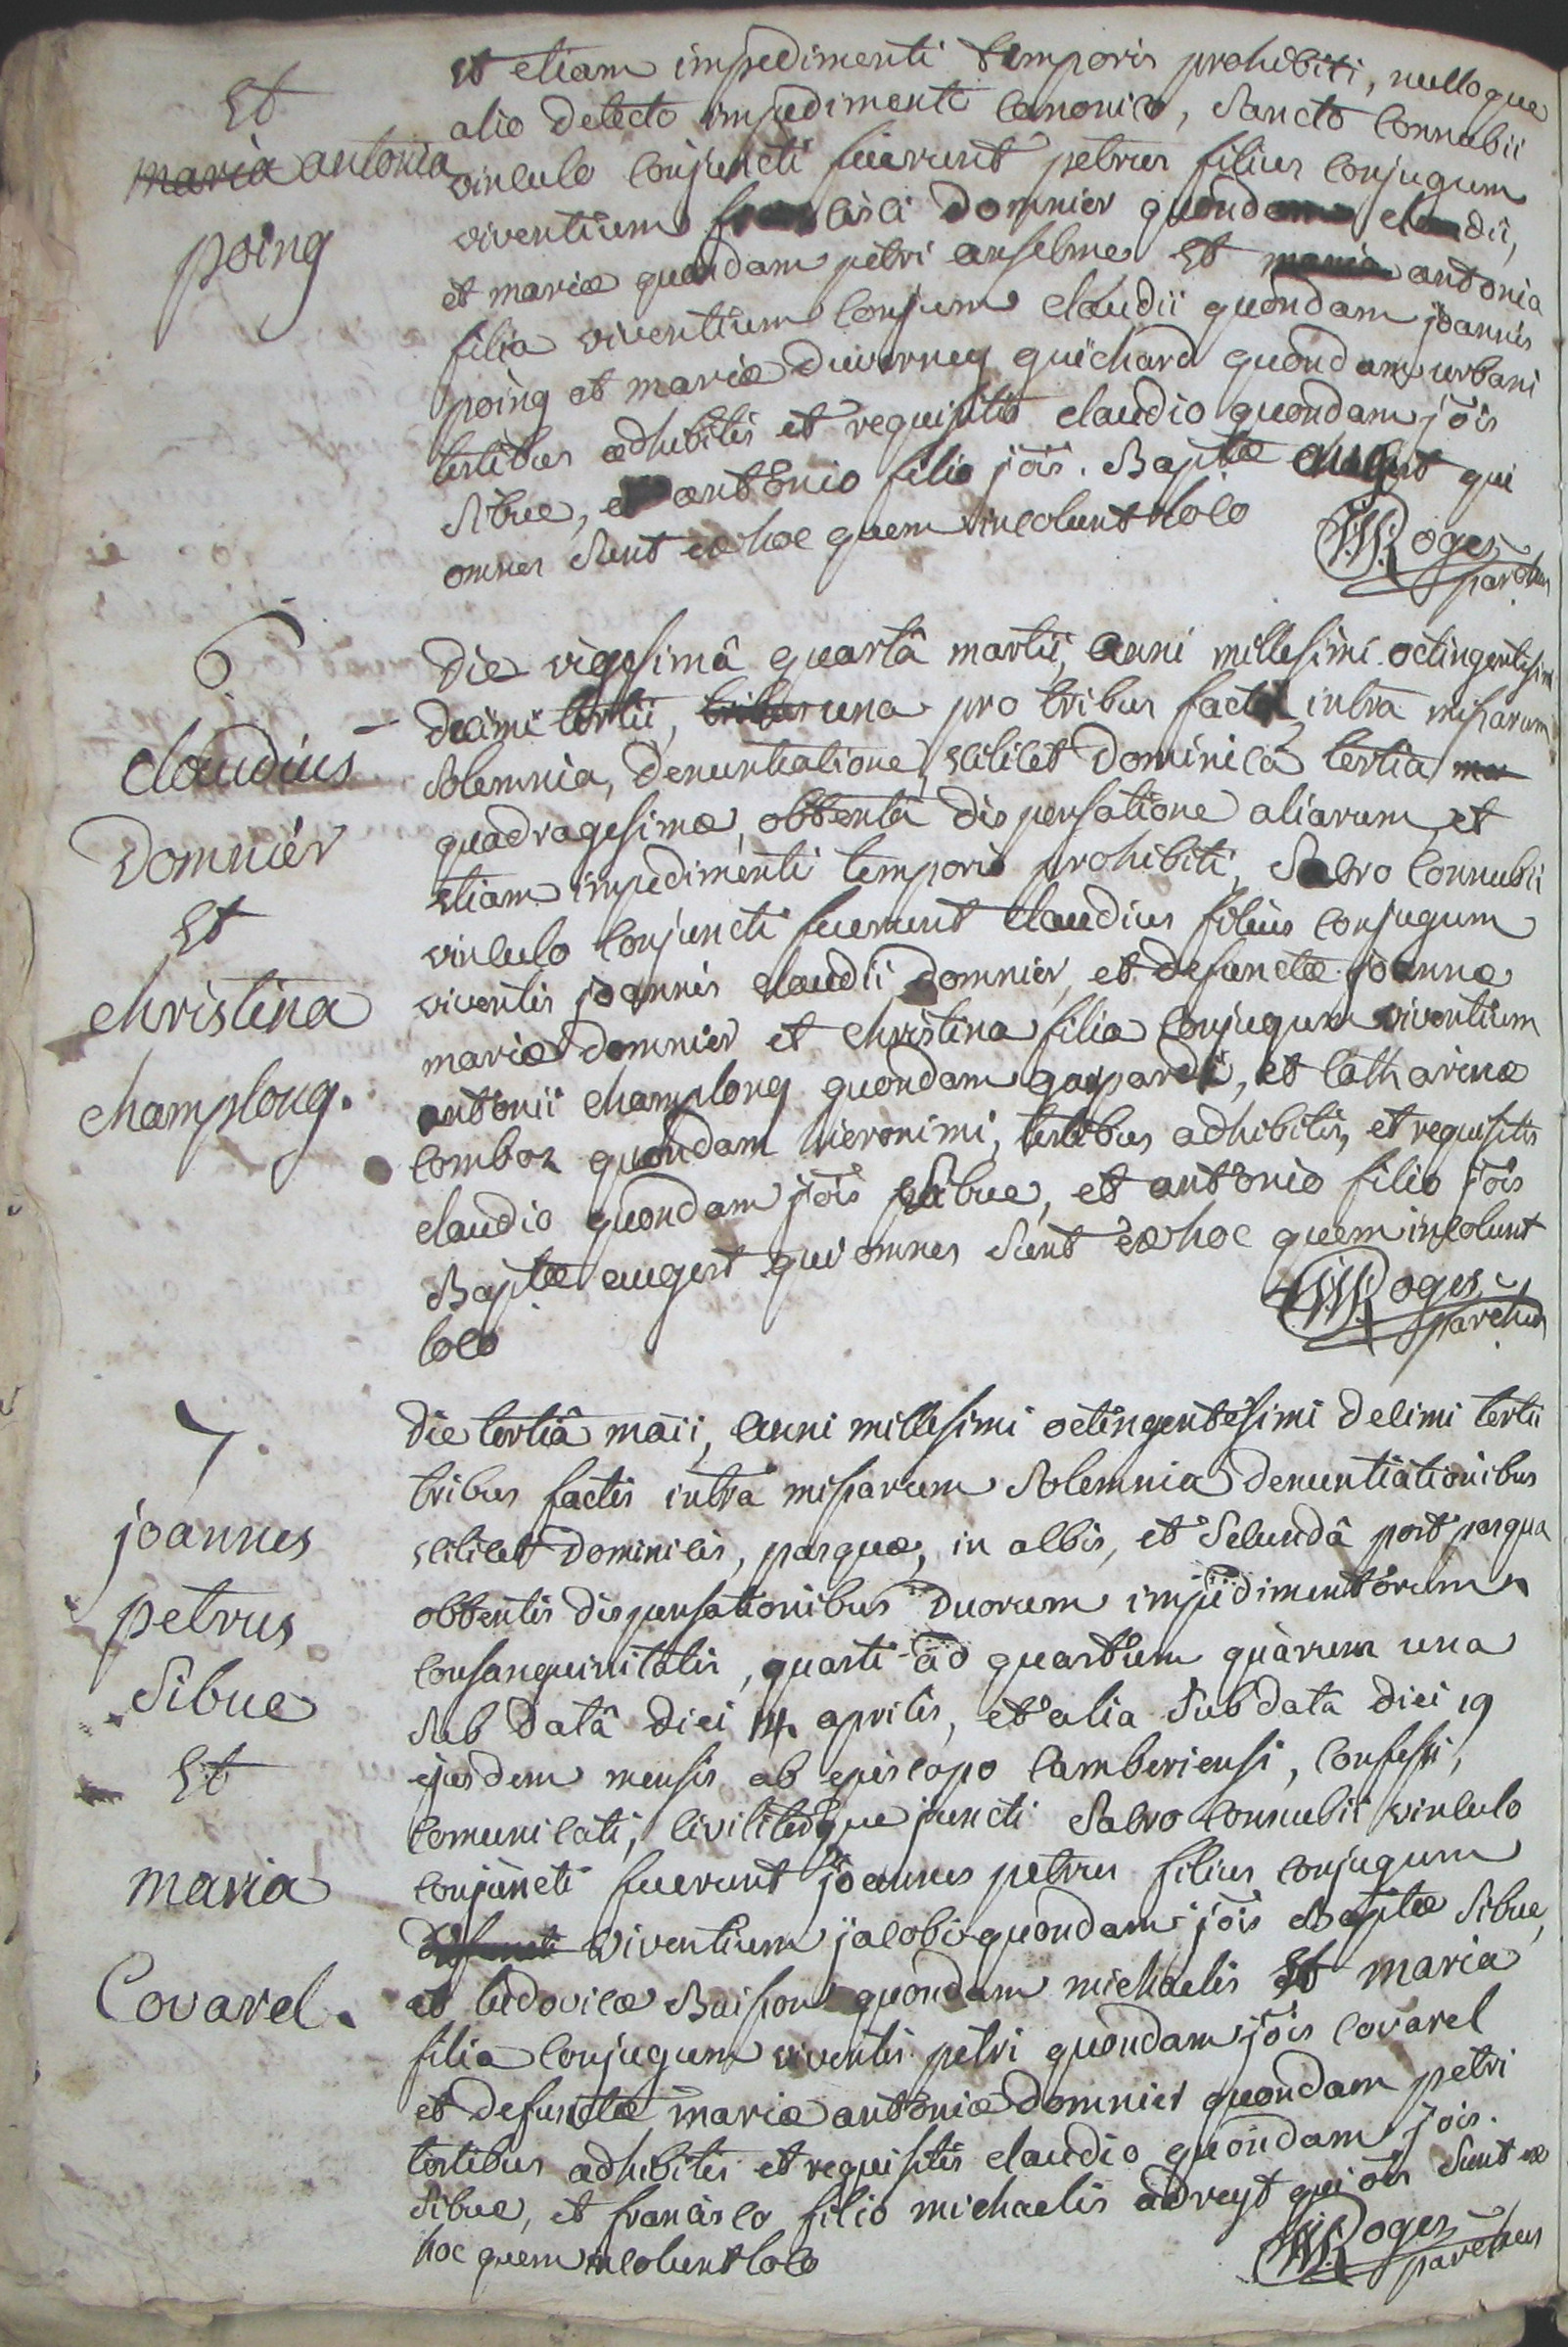 Et
maria antonia
poing
et etiam impedimenti temporis prohibiti, nulloque
alio detecto impedimento canonico, Sancto connubii
vinculo conjuncti fuerunt petrus filius conjugum
viventium francisci Domnier quondam claudii,
et mariæ quondam petri anselme Et maria antonia
filia viventium conjum claudii quondam joannis
poing et mariæ duverney guichard quondam urbani
testibus adhibitis et requisitis claudio quondam jois
Sibue, et antonio filio jois. Baptæ augert qui
omnes sunt ex hoc quem incolunt loco
Roges
parochus
6
claudius
Domnier
Et
christina
champlong.
Die vigesimâ quartâ martii, anni millesimi octingentesimi
decimi tertii, tribus una pro tribus facta intra missarum
solemnia, denuntiatione, scilicet Dominicâ tertia
quadragesimæ, obtentâ dispensatione aliarum, et
etiam impedimenti temporis prohibiti, Sacro connubii
vinculo conjuncti fuerunt claudius filius conjugum
viventis joannis claudii Domnier, et defunctæ joannæ
mariæ Domnier et christina filia conjugum viventium
antonii champlong quondam gaspardi, et catharinæ
comboz quondam hieronimi, testibus adhibitis, et requisitis
claudio quondam jois Sibue, et antonio filio jois
Baptæ augert qui omnes sunt ex hoc quem incolunt
loco
Roges
parochus
7.
joannes
petrus
Sibue
Et
maria
Covarel.
Die tertiâ maii, anni millesimi octingentesimi decimi tertii
tribus factis intra missarum Solemnia denuntiationibus
scilicet Dominicis, pasquæ, in albis, et Secundâ post pasqua
obtentis dispensationibus duorum impedimentorum
consanguinitatis, quarti ad quartum quarum una
sub datâ diei 14 aprilis, et alia Sub data diei 19
ejusdem mensis ab episcopo camberiensi, confessi,
comunicati, civiliterque juncti Sacro connubii vinculo
conjuncti fuerunt joannes petrus filius conjugum
defuncti viventium jacobi quondam jois Baptæ Sibue,
et ludovicæ Buisson quondam michaelis Et maria
filia conjugum viventis petri quondam jois covarel
et defunctæ mariæ antoniæ Domnier quondam petri
testibus adhibitis et requisitis claudio quondam jois.
Sibue, et francisco filio michaelis adreyt qui oes Sunt ex
hoc quem incolunt loco
Roges
parochus